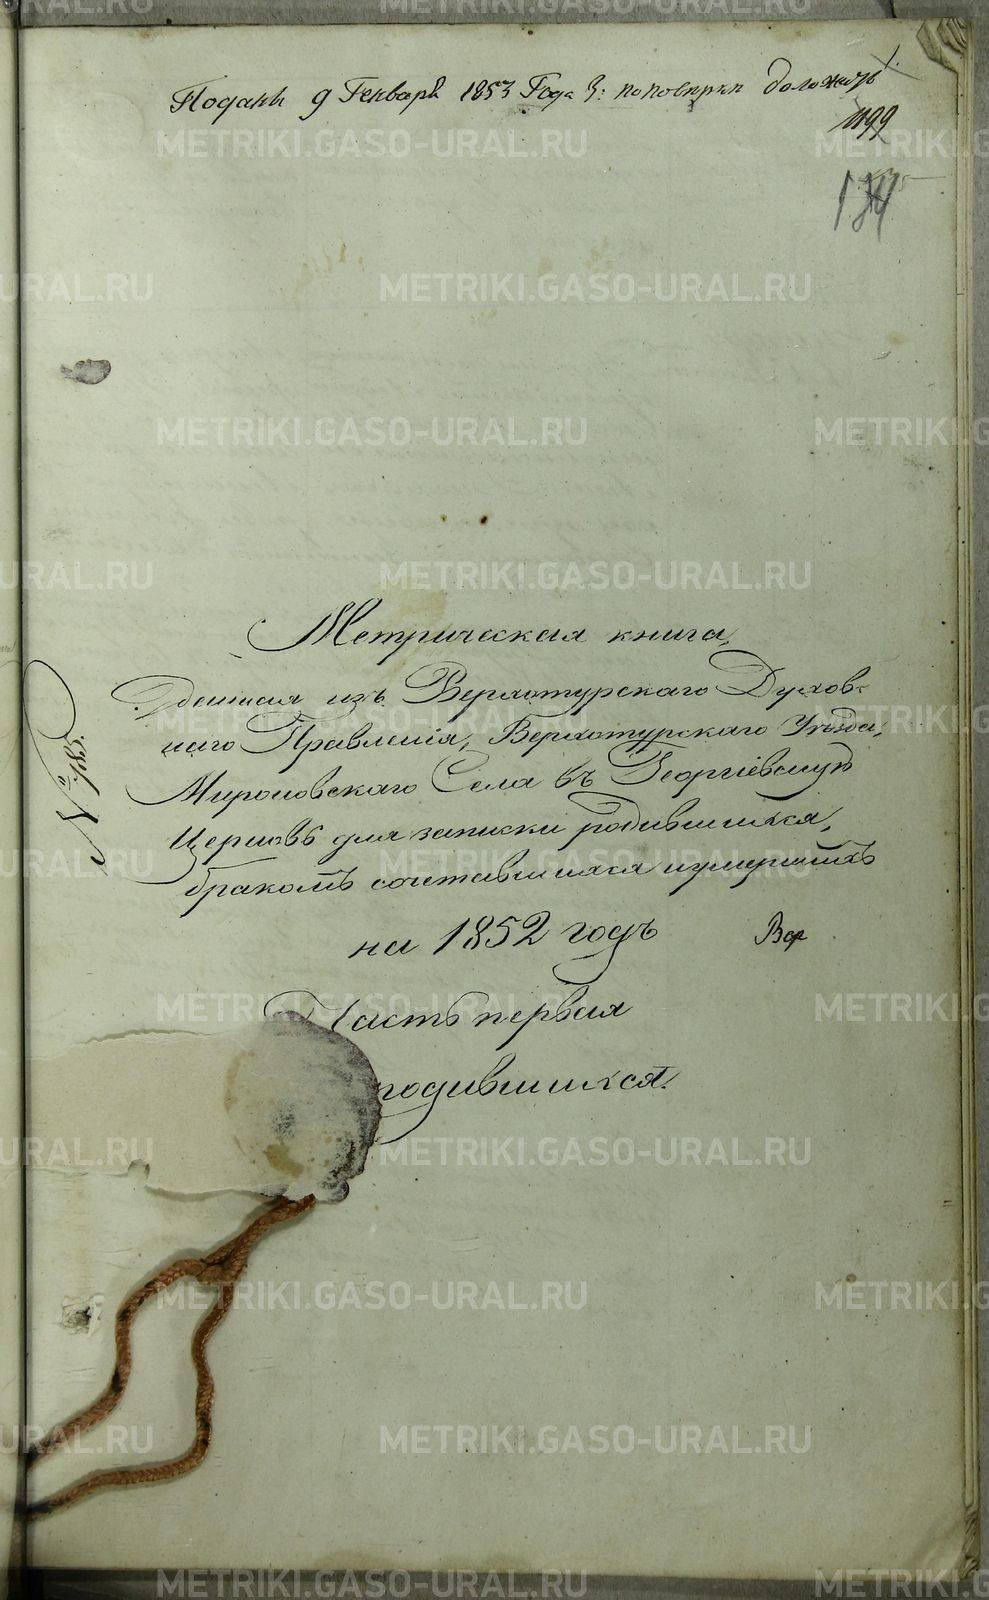 Поданы 9 Генваря 1853 Года
1199
№ 185.
Метрическая книга,
данная изъ Верхотурскаго Духов-
наго Правленія, Верхотурскаго Уѣзда,
Мироновскаго Села въ Георгіевскую
Церковь для записки родившихся,
бракомъ сочетавшихся и умершихъ
на 1852 годъ
Часть первая
родившихся.
METRIKI.GASO-URAL.RU